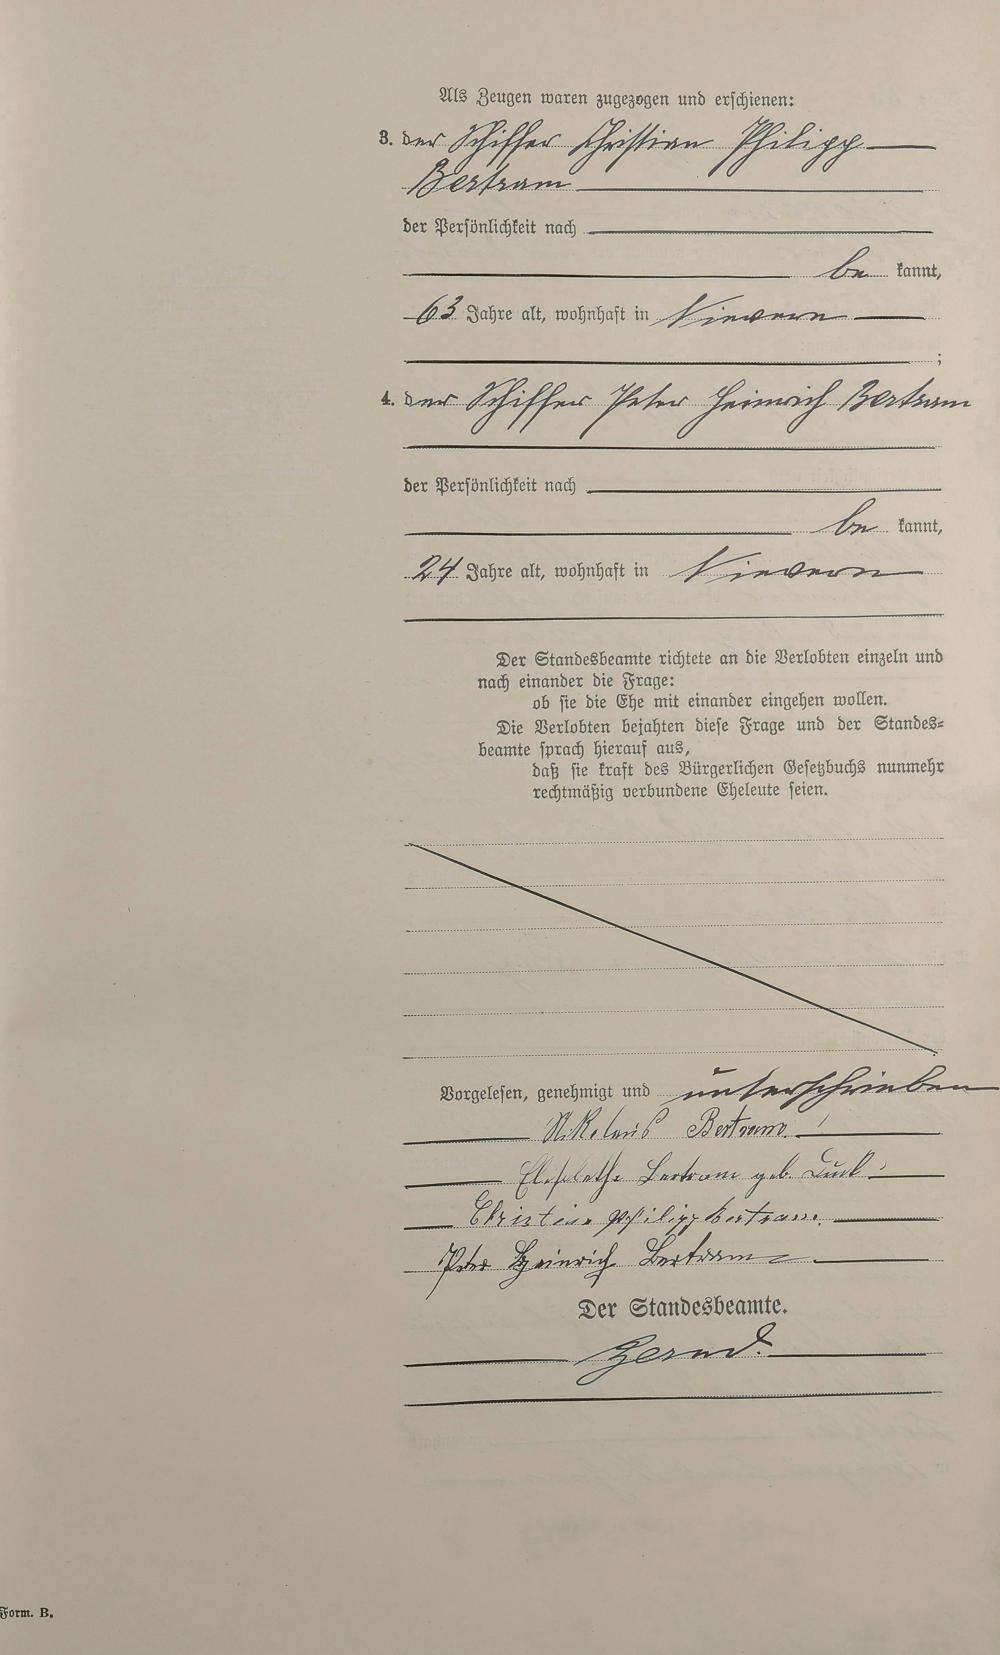 Als Zeugen waren zugezogen und erschienen:
3. der Schiffer Christian Philipp
Bertram
der Persönlichkeit nach
be kannt,
63 Jahre alt, wohnhaft in Nievern
;
4. der Schiffer Peter Heinrich Bertram
der Persönlichkeit nach
be kannt,
24 Jahre alt, wohnhaft in Nievern
Der Standesbeamte richtete an die Verlobten einzeln und
nach einander die Frage:
ob sie die Ehe mit einander eingehen wollen.
Die Verlobten bejahten diese Frage und der Standes-
beamte sprach hierauf aus,
daß sie kraft des Bürgerlichen Gesetzbuchs nunmehr
rechtmäßig verbundene Eheleute seien.
Vorgelesen, genehmigt und unterschrieben
Nikolaus Bertram
Elisabethe Bertram geb.
Christian Philipp Bertram.
Peter Heinrich Bertram
Der Standesbeamte.
Form. B.